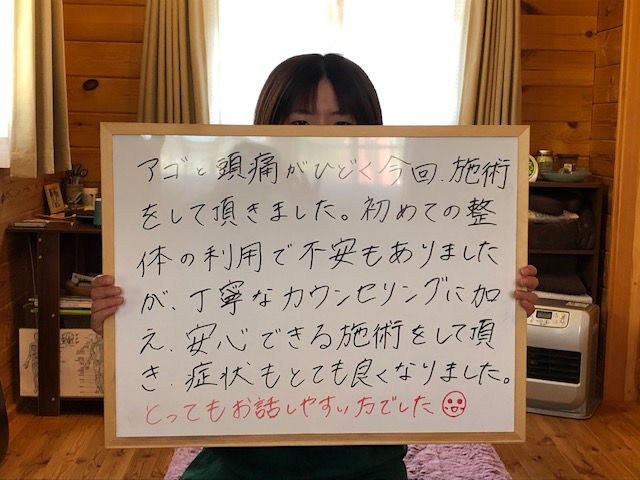 アゴと頭痛がひどく今回、施術
をして頂きました。初めての整
体の利用で不安もありました
が、丁寧なカウンセリングに加
え、安心できる施術をして頂
き、症状もとても良くなりました。
とってもお話しやすい方でした